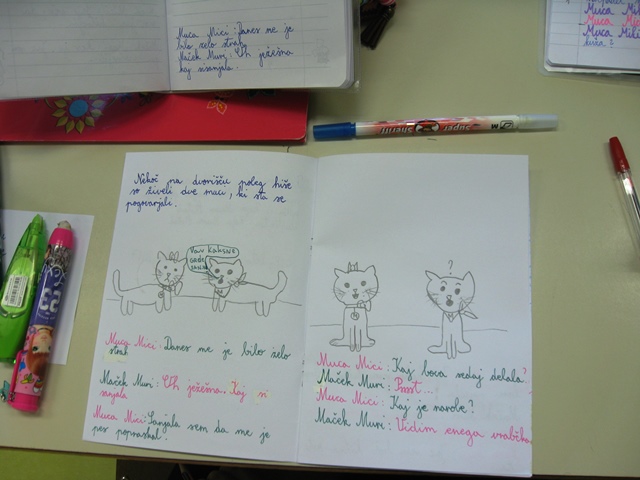 Muca Mici: Danes me je
bilo zelo strah
Maček Muri: Uh ježešna
kaj si sanjala.
Muca
Muca
Muca
SUPER Sheriff
Nekoč na dvorišču poleg hiše
so živeli dve muci, ki sta se
pogovarjali.
Muca Mici: Danes me je bilo zelo
strah
Maček Muri: Uh ježešna. Kaj si
sanjala
Muca Mici: Sanjala sem da me je
pes popraskal.
?
Muca Mici: Kaj bova sedaj delala?
Maček Muri: Pssst...
Muca Mici: Kaj je narobe?
Maček Muri: Vidim enega vrabčka